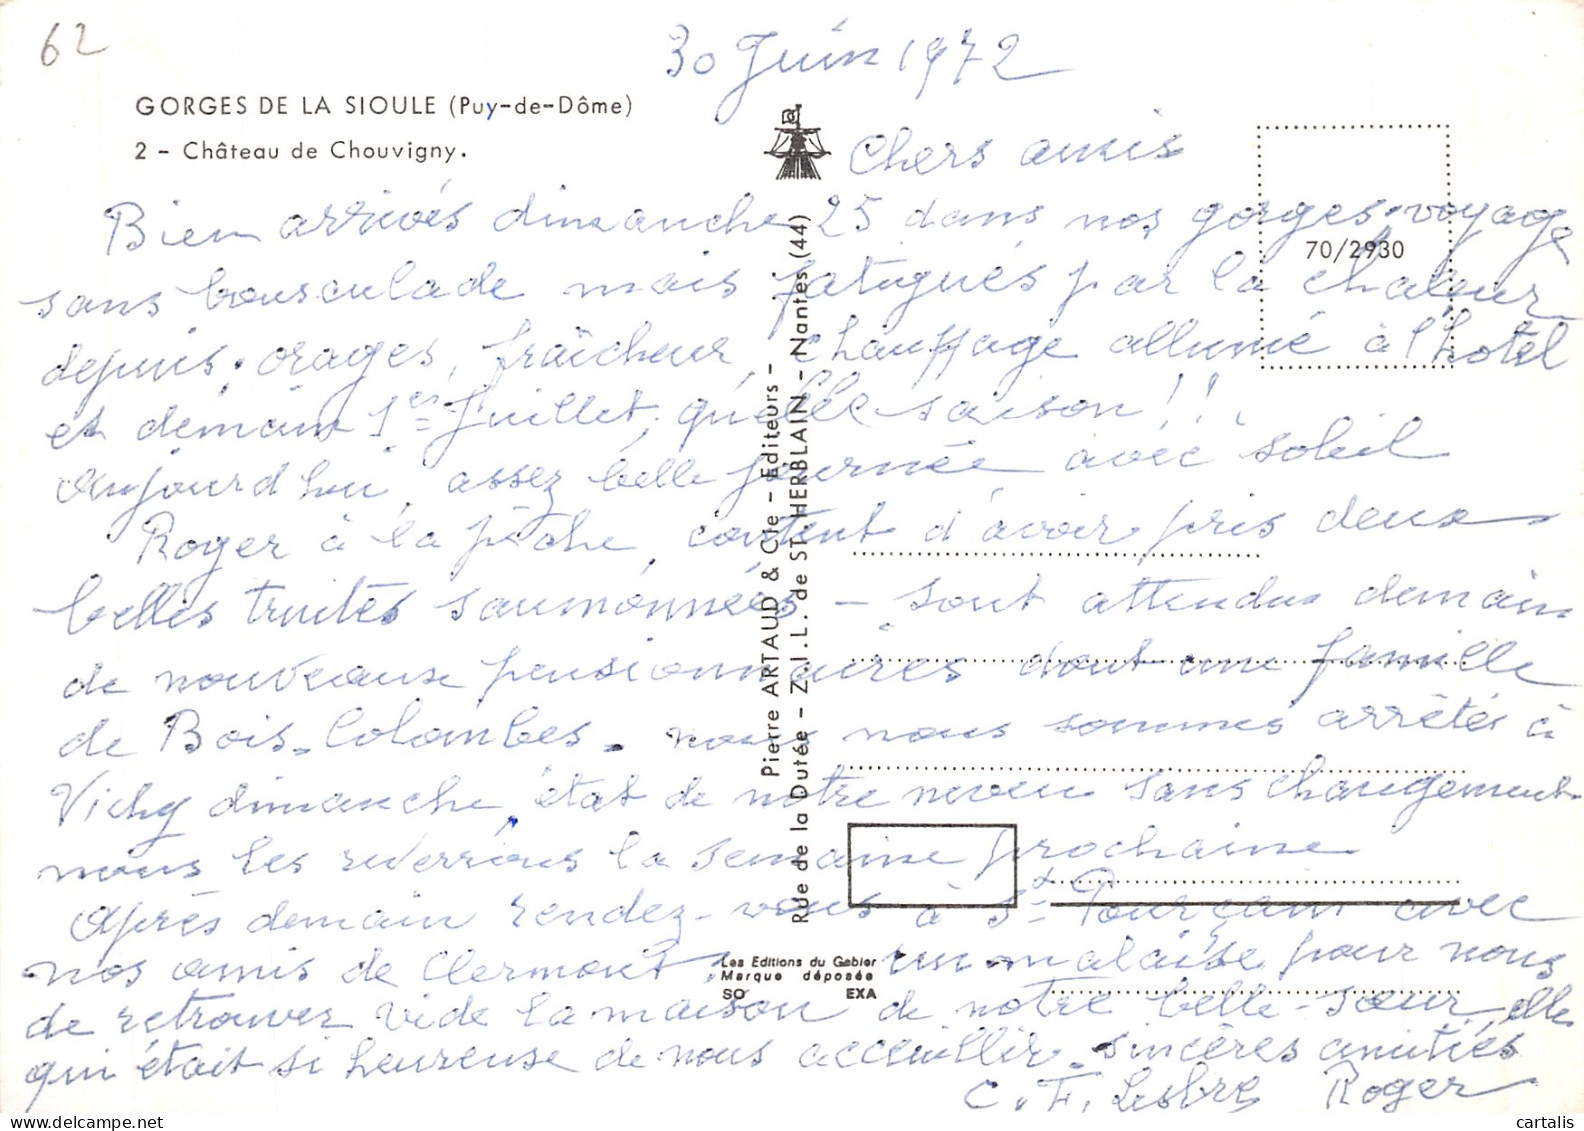 62
30 Juin 1972
GORGES DE LA SIOULE (Puy-de-Dôme)
2 - Château de Chouvigny.
Chers amis
Bien arrivés dimanche 25 dans nos gorges. voyage
70/2930
sans bousculade mais fatigués par la chaleur
depuis, orages, fraîcheur, chauffage allumé à l'hotel
et demain 1er Juillet, quelle saison !!
aujourd'hui, assez belle journée avec soleil
Roger à la pêche, content d'avoir pris deux
belles truites saumonnées - sont attendus demain
de nouveaux pensionnaires dont une famille
de Bois-Colombes. nous nous sommes arrêtés à
Vichy dimanche, état de notre neveu sans changement
nous les reverrons la semaine prochaine
Après demain rendez-vous à St Pourçain avec
nos amis de Clermont, un malaise pour nous
de retrouver vide la maison de notre belle-soeur, elle
qui était si heureuse de nous accueillir. sincères amitiés
C. F. Lesbre Roger
Pierre ARTAUD & Cie - Editeurs -
Rue de la Dutée - Z.I.L. de ST-HERBLAIN - Nantes (44)
Les Editions du Gabier
Marque déposée
SO EXA
cartalis